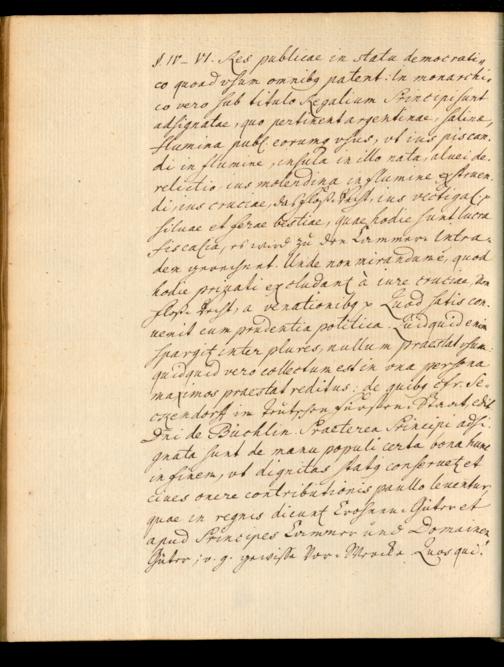 §. IV – VI. Res publicae in statu democrati
co quoad usum omnibq patent: In monarchi
co vero sub titulo Regalium Principi sunt
adsignatae, quo pertinent argentinae, salinae,
flumina publ. eorumq usus, ut ius piscan
di in flumine, insula in illo nata, aluei de
relictio, ius molendina in flumine exstruen
di, ius cruciae, das floß, ius vectigal
siluae et ferae bestiae, quae hodie sunt lucra
fiscalia, wird zu den Cammer- Intra
den gerechnet. Unde non mirandum e, quod
hodie priuati excludant à iure cruciae, von
a venationibq Quod satis con
uenit cum prudentia politica. Quidquid enim
spargit inter plures, nullum praestat usum:
quidquid vero collectum est in una persona
maximos praestat reditus: de quibq cfr. Se
ckendorf im Teutschen Fürsten-Staat, edit.
Dni de Büchlin. Praeterea Principi adsi
gnata sunt de manu populi certa bona hunc
in finem, ut dignitas statq conseruet et
ciues onere contributionis paullo leuentur,
quae in regnis dicunt Crohnen-Güter et
apud Principes Cammer und Domainen
Güter; v. g. gewisse Vor-Wercke. Quos qui